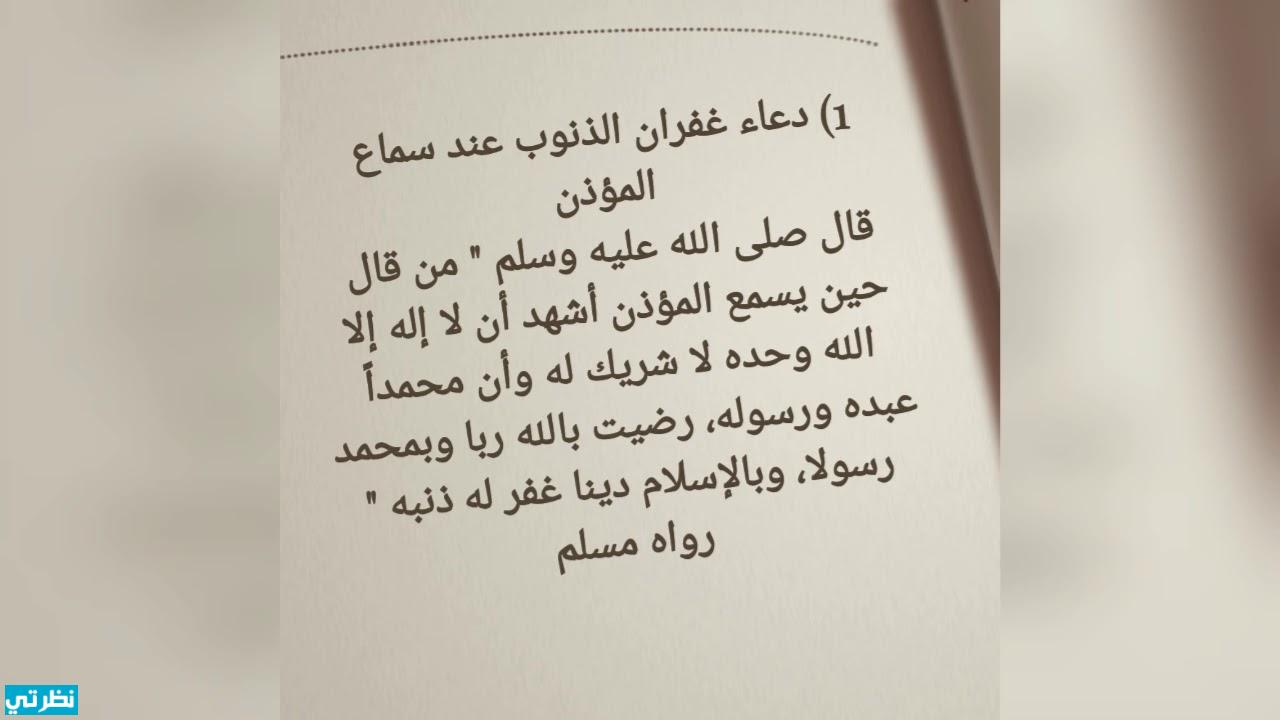 1) دعاء غفران الذنوب عند سماع
المؤذن
قال صلى الله عليه وسلم " من قال
حين يسمع المؤذن أشهد أن لا إله إلا
الله وحده لا شريك له وأن محمداً
عبده ورسوله، رضيت بالله ربا وبمحمد
رسولا، وبالإسلام دينا غفر له ذنبه "
رواه مسلم
نظرتي